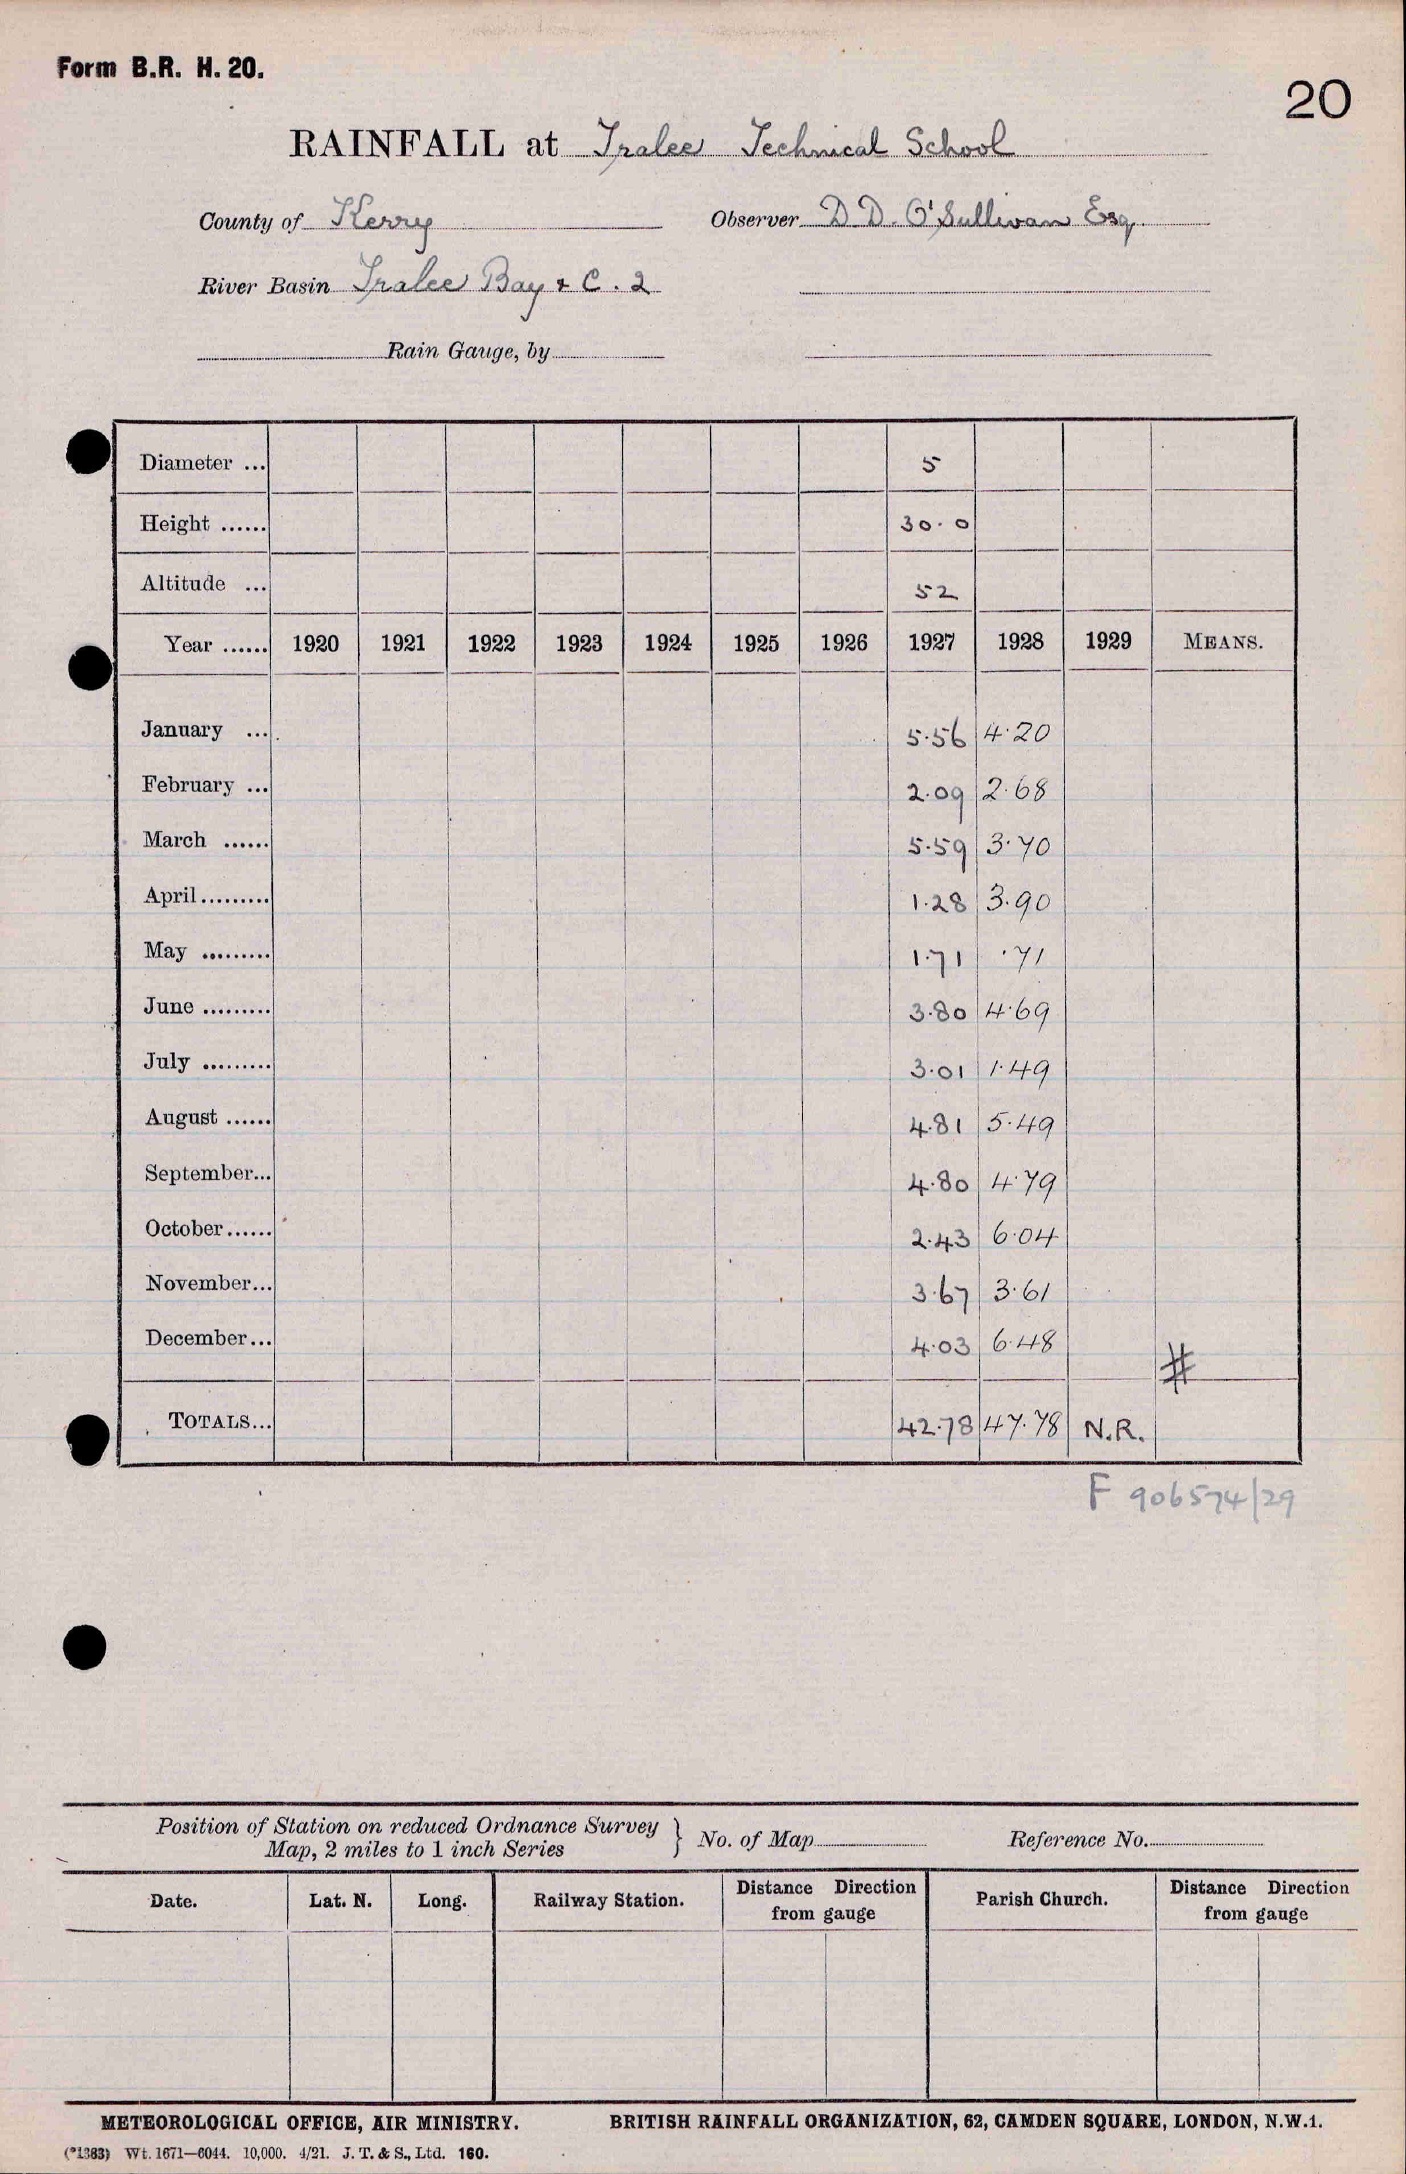 Form B.R. H. 20.
20
RAINFALL at Tralee Technical School
County of Kerry Observer D. D. O'Sullivan Esq.
River Basin Tralee Bay & C. 2
Rain Gauge, by
Diameter ... 5
Height ...... 30.0
Altitude ... 52
Year ...... 1920 1921 1922 1923 1924 1925 1926 1927 1928 1929 MEANS.
January ... 5.56 4.20
February ... 2.09 2.68
March ...... 5.59 3.70
April......... 1.28 3.90
May ......... 1.71 .71
June ......... 3.80 4.69
July ......... 3.01 1.49
August ...... 4.81 5.49
September... 4.80 4.79
October...... 2.43 6.04
November... 3.67 3.61
December... 4.03 6.48
#
TOTALS... 42.78 47.78 N.R.
F 906574/29
Position of Station on reduced Ordnance Survey
Map, 2 miles to 1 inch Series } No. of Map Reference No.
Date. Lat. N. Long. Railway Station. Distance Direction from gauge Parish Church. Distance Direction from gauge
METEOROLOGICAL OFFICE, AIR MINISTRY. BRITISH RAINFALL ORGANIZATION, 62, CAMDEN SQUARE, LONDON, N.W.1.
(*1383) Wt. 1671—6044. 10,000. 4/21. J. T. & S., Ltd. 160.